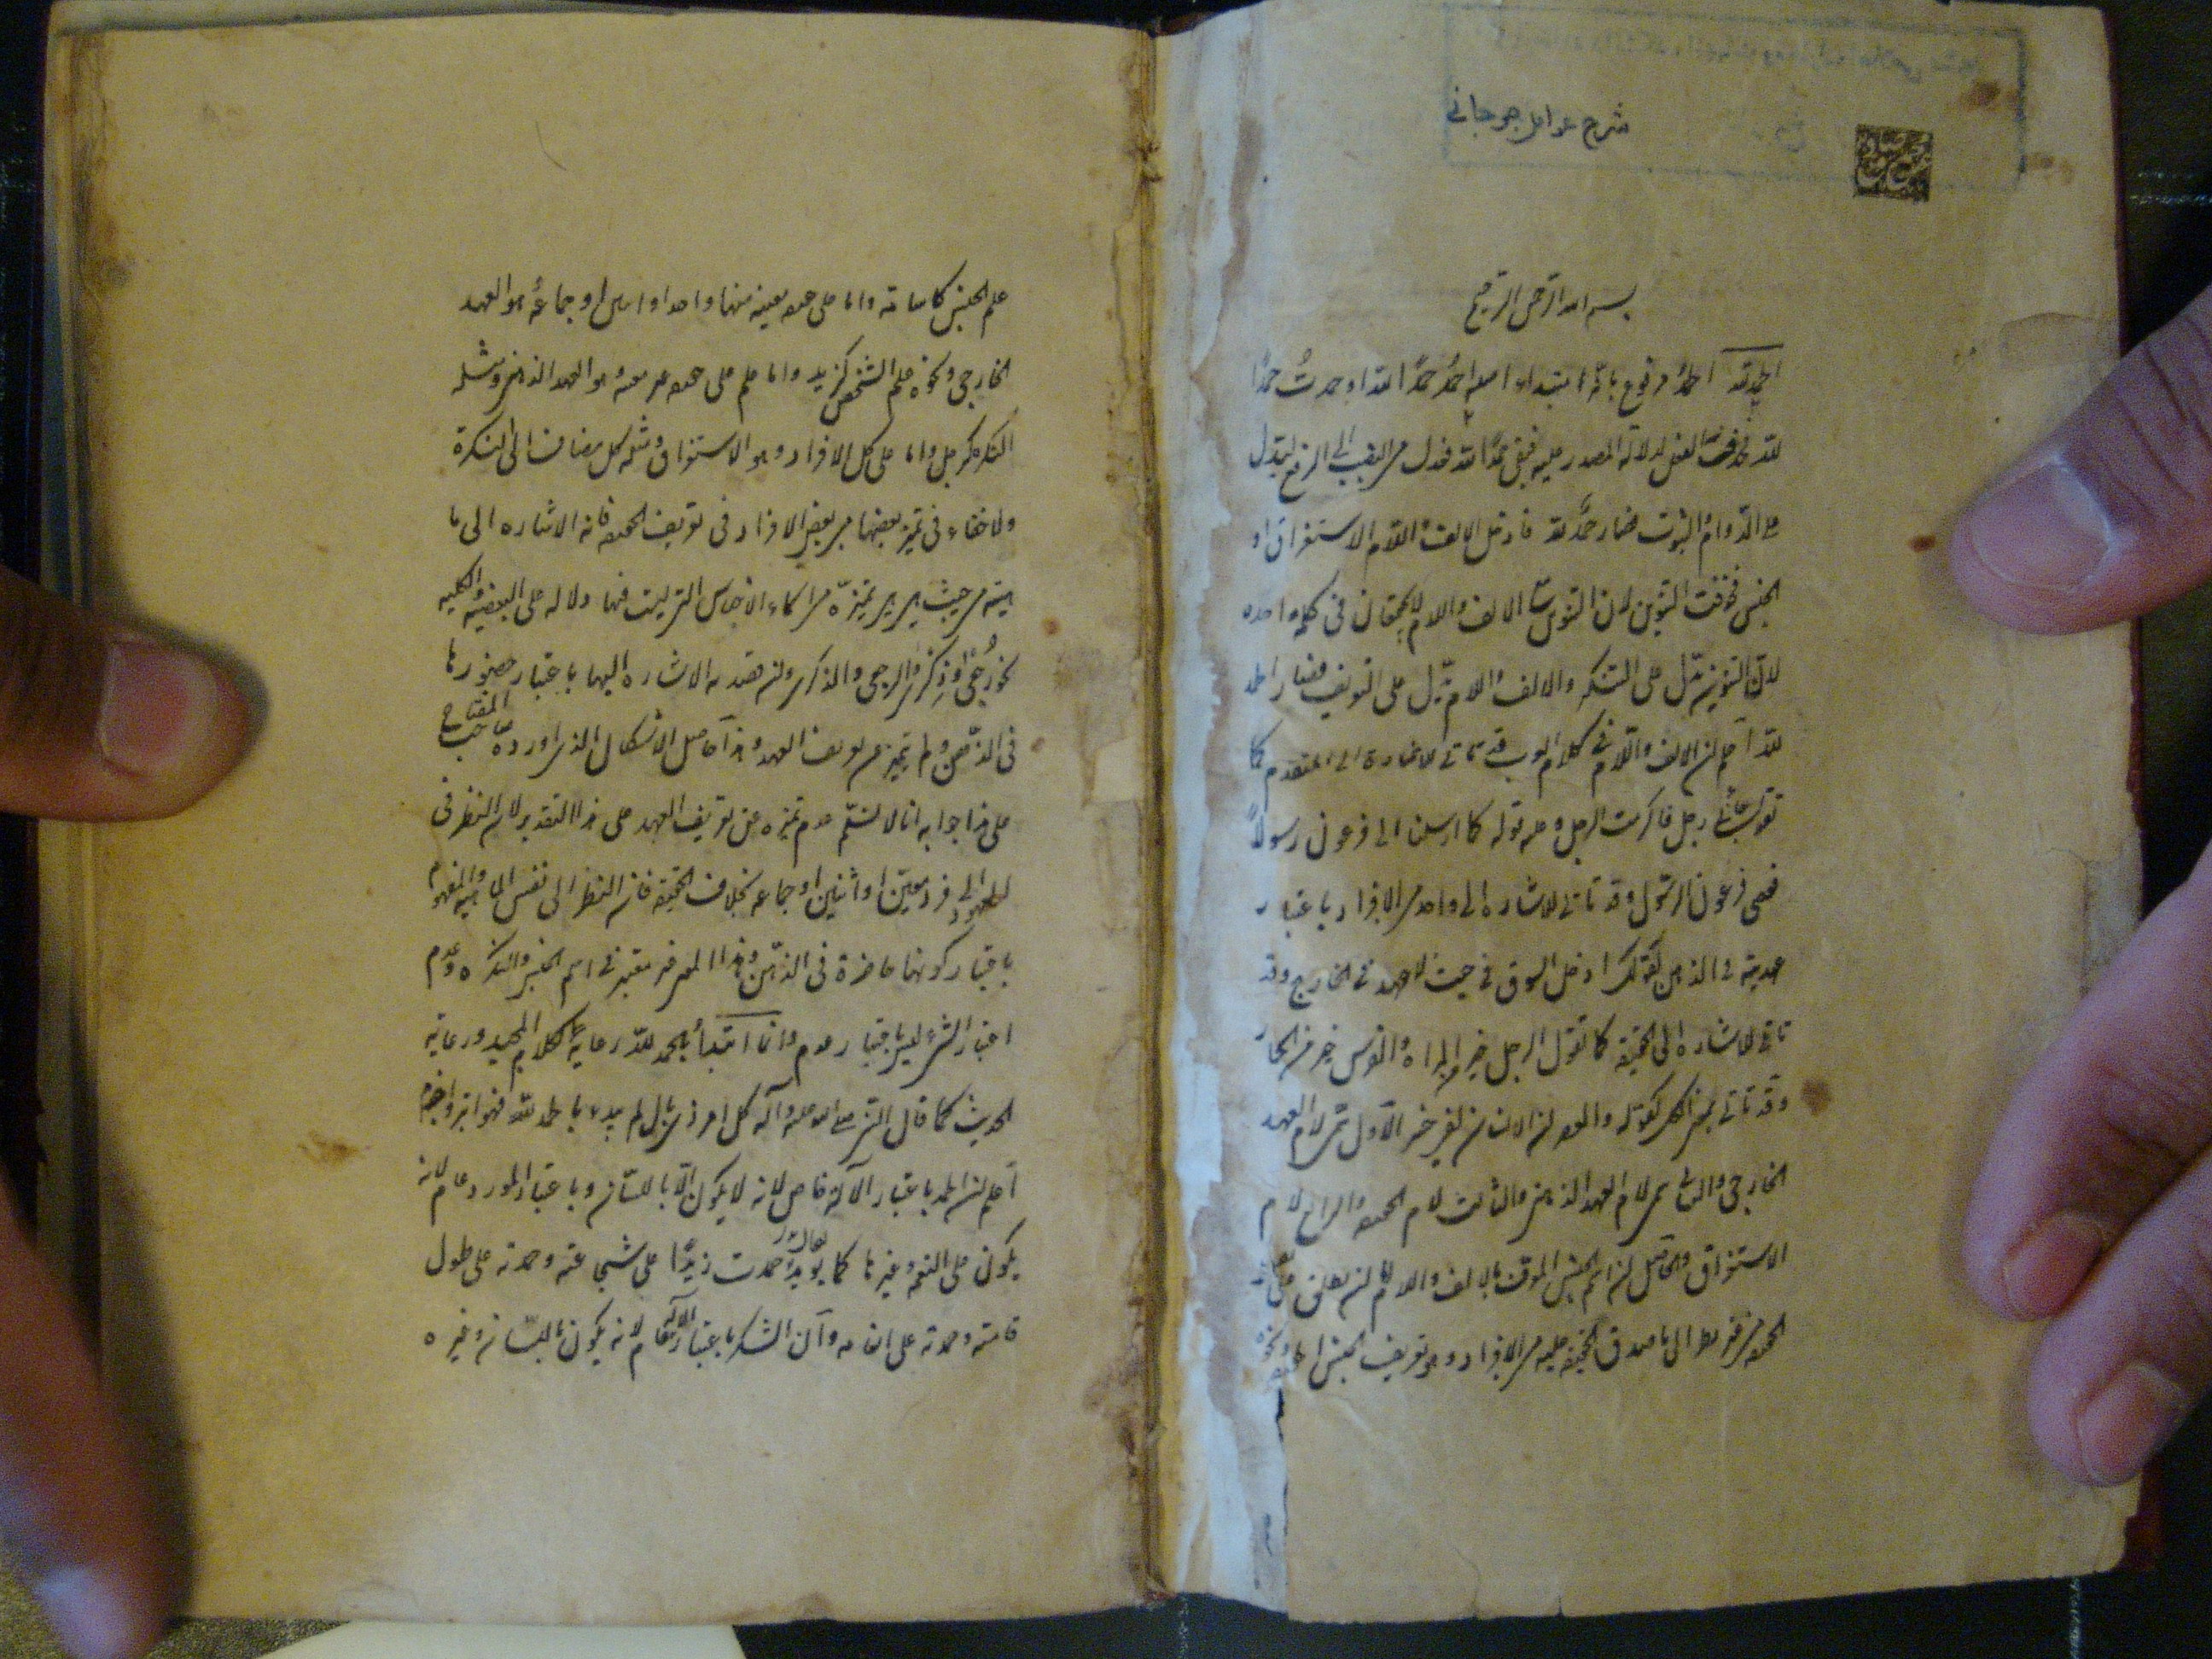 شرح عوامل جرجانی
بسم الله الرحمن الرحیم
الحمد لله الحمد مرفوع بانه ابتداء اصله احمد حمدا لله او حمدت حمدا
لله فحذف الفعل لدلالة المصدر علیه فبقی حمدا لله فعدل من النصب الی الرفع لیدل
علی الدوام و الثبوت فصار حمد لله فادخل الالف و اللام الاستغراق او
الجنس فحذفت التنوین لان التنوین و الالف و اللام لا یجتمعان فی کلمة واحدة
لان التنوین تدل علی التنکیر و الالف و اللام تدل علی التعریف فصار الحمد
لله اعلم ان الالف و اللام فی کلام العرب قد تاتی للاشارة الی المتقدم کما
تقول جائنی رجل فاکرمت الرجل و منه قوله کما ارسلنا الی فرعون رسولا
فعصی فرعون الرسول و قد تاتی للاشاره الی واحد من الافراد باعتبار
عهدیته فی الذهن کقولک ادخل السوق فی حیث لا عهد فی الخارج و قد
تاتی للاشاره الی الحقیقة کما تقول الرجل خیر من المراة و الفرس خیر من الحمار
و قد تاتی بمعنی الکل کقوله و العصر ان الانسان لفی خسر الاول تسمی لام العهد
الخارجی و الثانی تسمی لام العهد الذهنی و الثالث لام الحقیقة و الرابع لام
الاستغراق و الحاصل ان اسم الجنس المعرف بالالف و اللام اما ان یطلق علی
الحقیقة من غیر نظر الی ما صدق الحقیقة علیه من الافراد و هو تعریف الجنس و نحوه
علم الجنس کاسامة و اما علی حصة معینة منها واحدا او اثنین او جماعة و هو العهد
الخارجی و نحوه علم الشخص کزید و اما علی حصة غیر معینة و هو العهد الذهنی و مثله
النکرة کرجل و اما علی کل الافراد و هو الاستغراق و مثله کل مضاف الی النکرة
و لا خفاء فی تمیز بعضها من بعض الا فی تعریف الحقیقة فانه الاشاره الی ما
من حیث هی هی تمیزه من اسماء الاجناس التی لیست فیها دلالة علی البعضیة و الکلیة
نحو رجعی و ذکری و الرجعی و الذکری و ان قصد به الاشاره الیها باعتبار حضورها
فی الذهن لم تمیز عن تعریف العهد و هذا حاصل الاشکال الذی اورده صاحب المفتاح
علی هذا جوابه انا لا نسلم عدم تمیزه عن تعریف العهد علی هذا التقدیر لان النظر فی
المعهود الی فرد معین او اثنین او جماعة بخلاف الحقیقة فان النظر الی نفس الماهیة و المفهوم
باعتبار کونها حاضرة فی الذهن و هذا المعنی غیر معتبر فی اسم الجنس النکرة و عدم
اعتبار الشیء لیس باعتبار عدمه و انما ابتدأ بالحمد لله رعایة لکلام المجید و رعایة
الحدیث کما قال النبی صلی الله علیه و آله کل امر ذی بال لم یبدء بالحمد لله فهو ابتر و اجذم
اعلم ان الحمد باعتبار الآلة خاص لانه لا یکون الا باللسان و باعتبار المورد عام لانه
یکون علی النعمة و غیرها کما یقال حمدت زیدا علی شجاعته و حمدته علی طول
قامته و حمدته علی انعامه و ان الشکر باعتبار الآلة عام لانه یکون باللسان و غیره